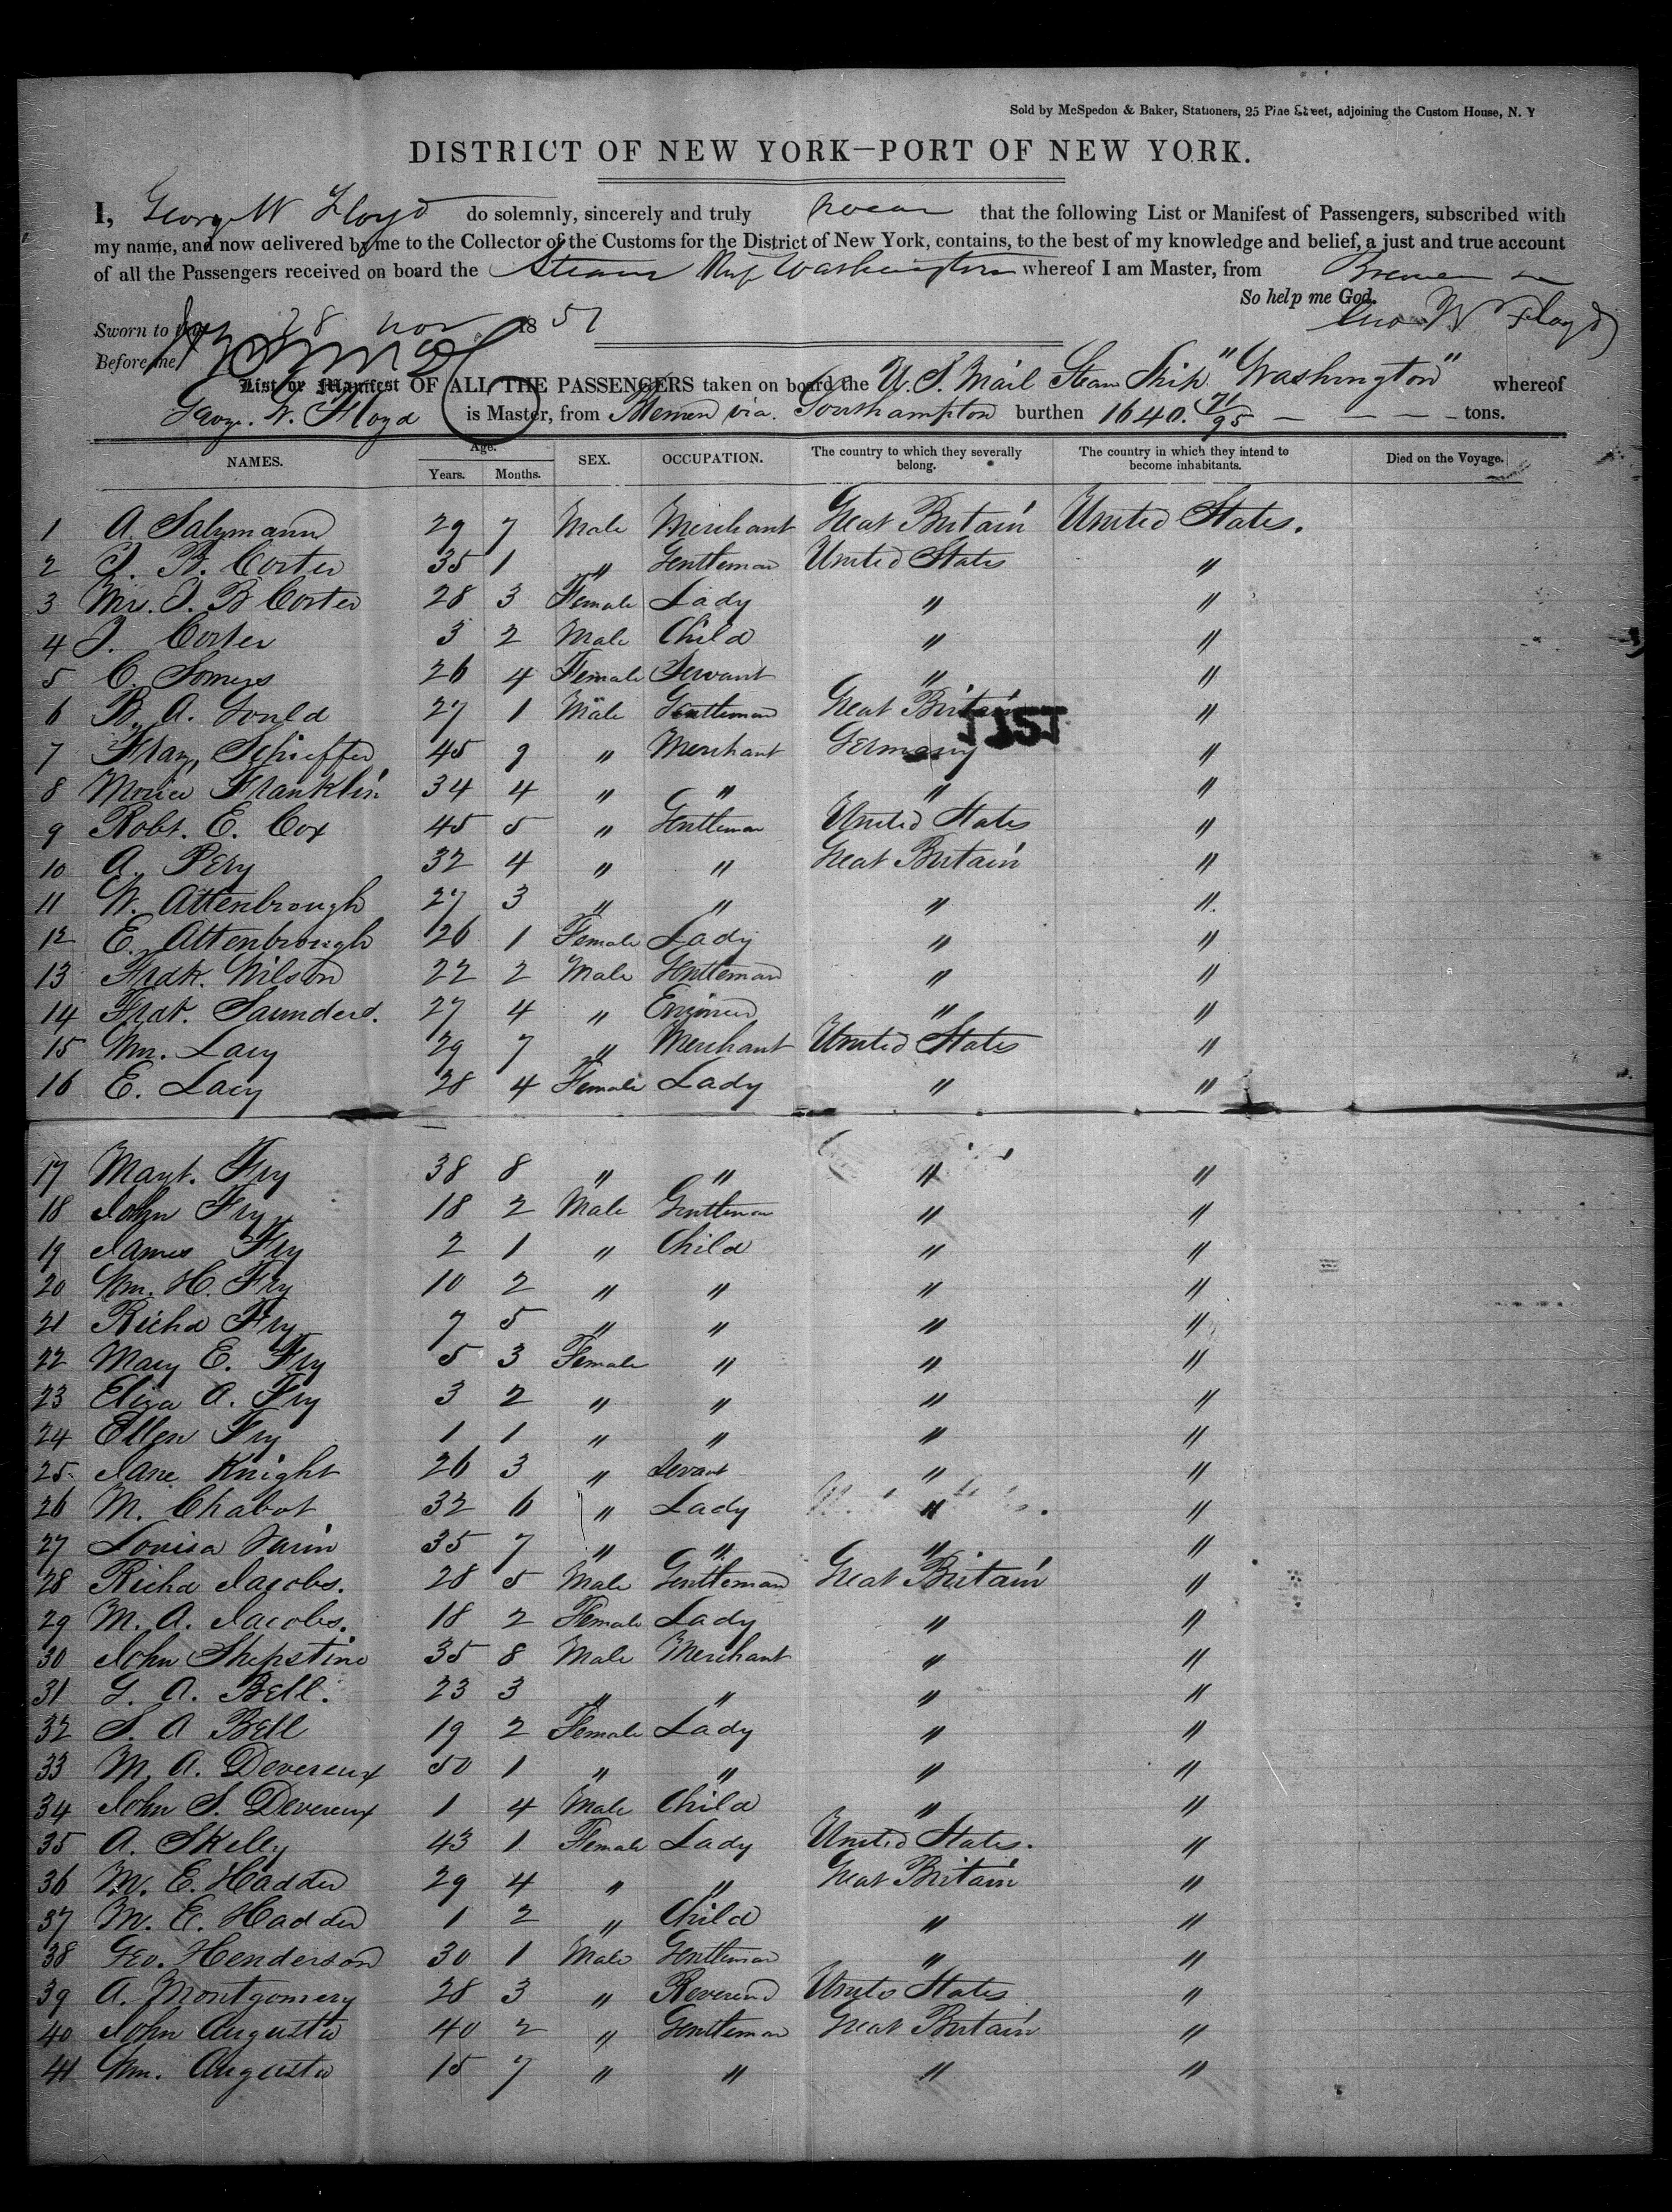 Sold by McSpedon & Baker, Stationers, 25 Pine Street, adjoining the Custom House, N. Y
DISTRICT OF NEW YORK—PORT OF NEW YORK.
I, George W Floyd do solemnly, sincerely and truly swear that the following List or Manifest of Passengers, subscribed with
my name, and now delivered by me to the Collector of the Customs for the District of New York, contains, to the best of my knowledge and belief, a just and true account
of all the Passengers received on board the Steam Ship Washington whereof I am Master, from Bremen
So help me God.
Sworn to 28 Nov 1851 Geo W Floyd
Before me
List or Manifest OF ALL THE PASSENGERS taken on board the U. S. Mail Steam Ship "Washington" whereof
George. W. Floyd is Master, from Bremen via. Southampton burthen 1640. 71/95 — — — — tons.
NAMES. Age. Years. Months. SEX. OCCUPATION. The country to which they severally belong. The country in which they intend to become inhabitants. Died on the Voyage.
1 A. Salzmann 29 7 Male Merchant Great Britain United States.
2 J. B. Coster 35 1 " Gentleman United States "
3 Mrs. J. B Coster 28 3 Female Lady " "
4 J. Coster 3 2 Male Child " "
5 C. Somers 26 4 Female Servant " "
6 B. A. Gould 27 1 Male Gentleman Great Britain "
7 Franz Schieffer 45 9 " Merchant Germany "
8 Morice Franklin 34 4 " " " "
9 Robt. E. Cox 45 5 " Gentleman United States "
10 A. Pery 32 4 " " Great Britain "
11 W. Attenbrough 27 3 " " " "
12 E. Attenbrough 26 1 Female Lady " "
13 Fredk. Wilson 22 2 Male Gentleman " "
14 Fredk. Saunders. 27 4 " Engineer " "
15 Wm. Lacy 29 7 " Merchant United States "
16 E. Lacy 28 4 Female Lady " "
17 Margt. Fry 38 8 " " " "
18 John Fry 18 2 Male Gentleman " "
19 James Fry 2 1 " Child " "
20 Wm. H. Fry 10 2 " " " "
21 Richd Fry 7 5 " " " "
22 Mary E. Fry 5 3 Female " " "
23 Eliza A. Fry 3 2 " " " "
24 Ellen Fry 1 1 " " " "
25. Jane Knight 26 3 " Servant " "
26 M. Chabot 32 6 " Lady " "
27 Louisa 35 7 " " " "
28 Richd Jacobs. 28 5 Male Gentleman Great Britain "
29 M. A. Jacobs. 18 2 Female Lady " "
30 John Shepstine 35 8 Male Merchant " "
31 G. A. Bell. 23 3 " " " "
32 S. A Bell 19 2 Female Lady " "
33 M. A. Devereux 50 1 " " " "
34 John S. Devereux 1 4 Male Child " "
35 A. Skelly 43 1 Female Lady United States. "
36 M. E. Hadder 29 4 " " Great Britain "
37 M. E. Hadder 1 2 " Child " "
38 Geo. Henderson 30 1 Male Gentleman " "
39 A. Montgomery 28 3 " Reverend United States "
40 John Augusta 40 2 " Gentleman Great Britain "
41 Wm. Augusta 15 7 " " " "